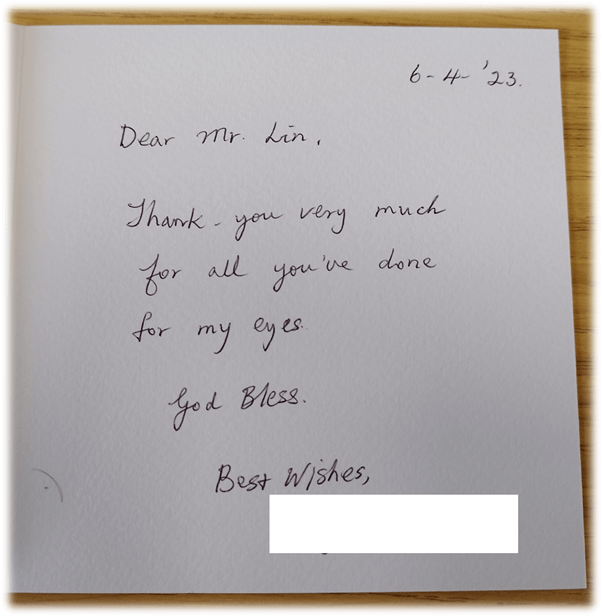 6-4-'23.
Dear Mr. Lin,
Thank-you very much
for all you've done
for my eyes.
God Bless.
Best Wishes,